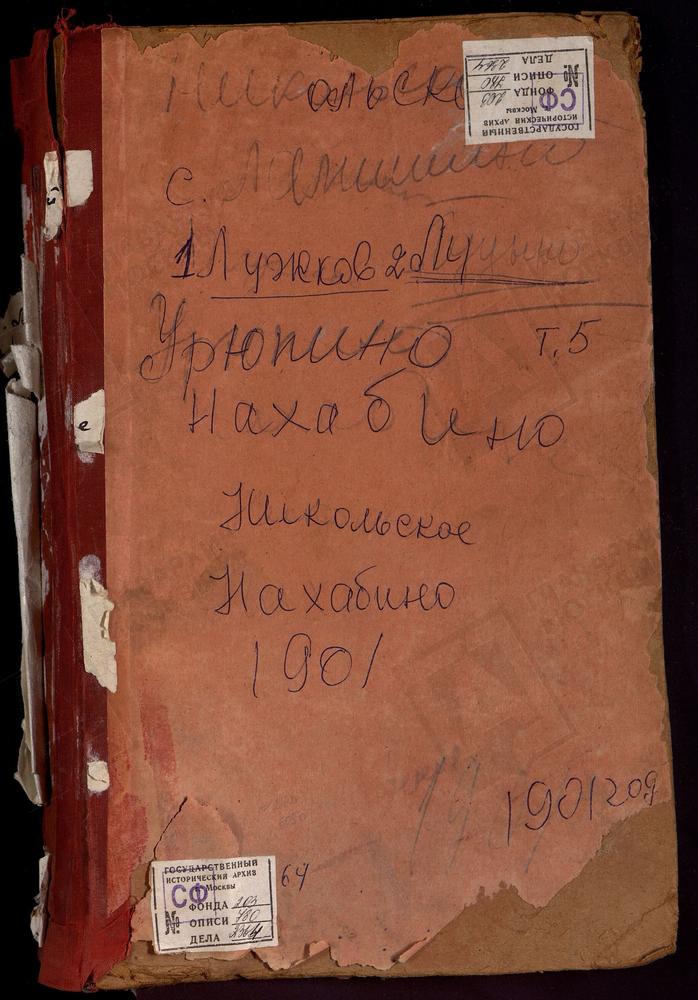 Никольско
ГОСУДАРСТВЕННЫЙ
ИСТОРИЧЕСКИЙ АРХИВ
Москвы
СФ
ФОНДА 203
№ ОПИСИ 780
ДЕЛА 2364
с.
1 Лужков 2 Луцыно
Урюпино т.5
Нахабино
е
Никольское
Нахабино
1901
1901 год
64
ГОСУДАРСТВЕННЫЙ
ИСТОРИЧЕСКИЙ АРХИВ
г. Москвы
СФ
ФОНДА 203
№ ОПИСИ 780
ДЕЛА 2364